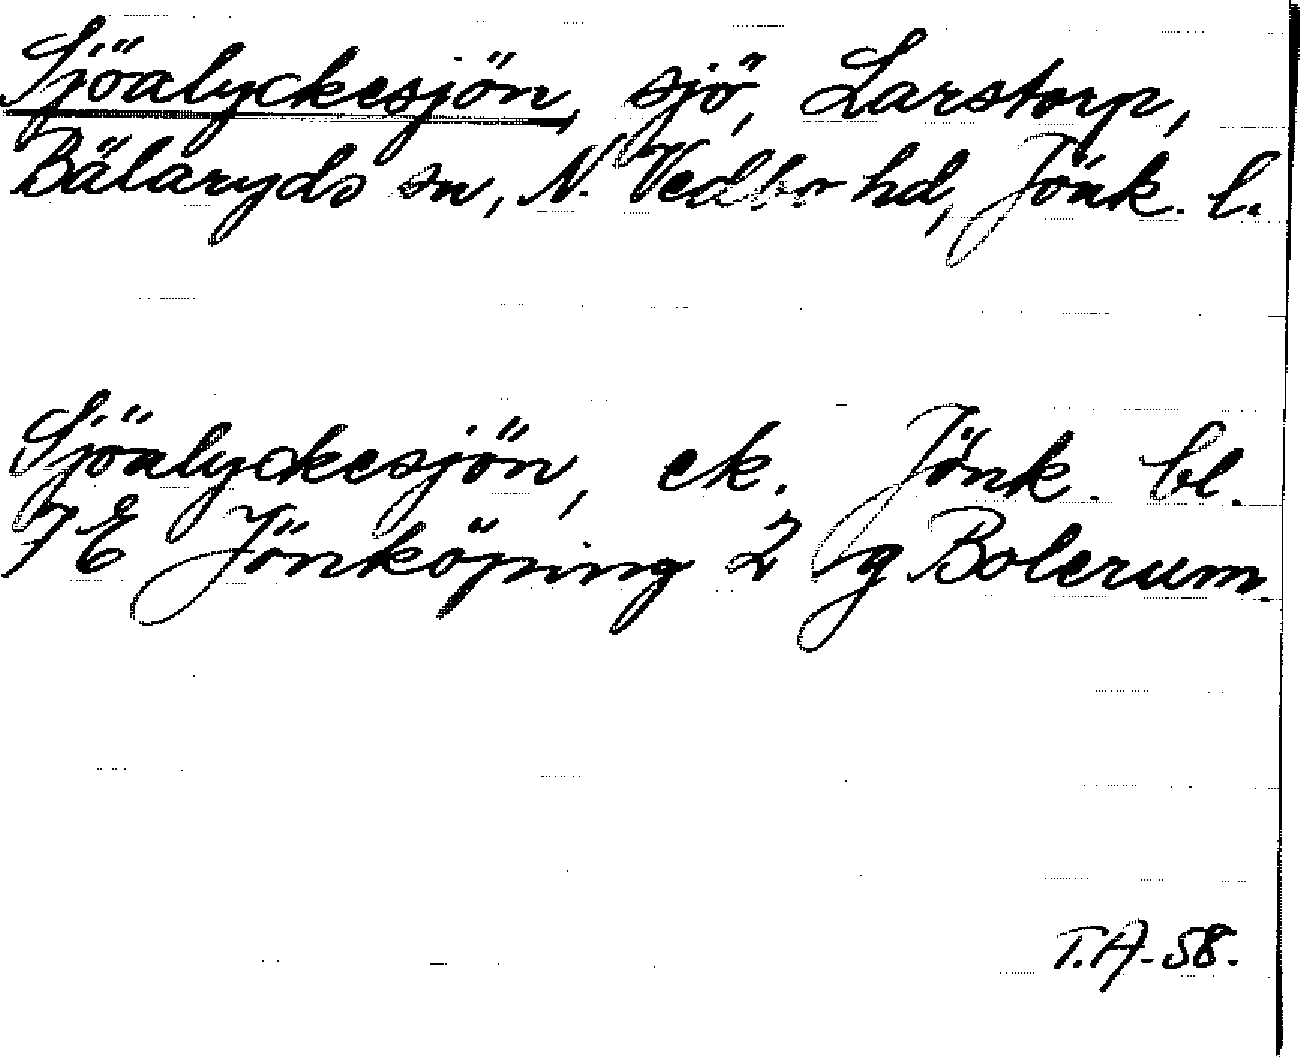 Sjöalyckesjön, sjö, Larstorp,
Bälaryds sn, N. Vedbo hd, Jönk. l.
Sjöalyckesjön, ek. Jönk. bl.
7E Jönköping 2 g Bolerum.
T.A-58.